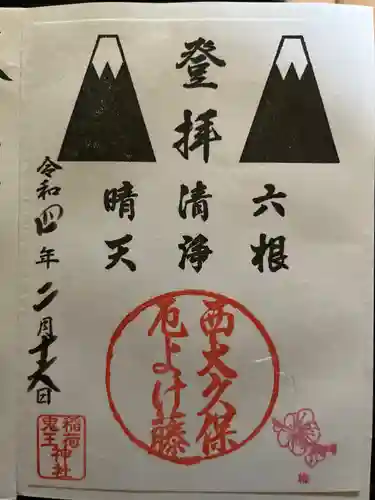 登拝
六根
清浄
晴天
令和四年二月十六日
西大久保
厄よけ藤
稲荷神社
鬼王